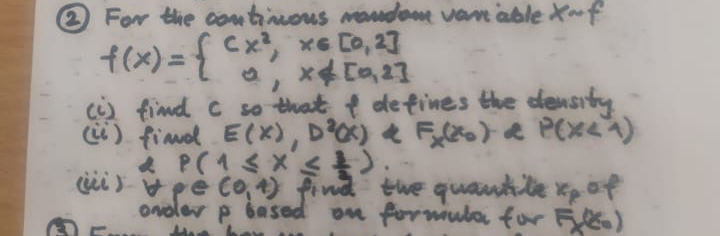 ② For the continous random variable X~f
f(x) = { Cx², x∈[0,2]
0, x∉[0,2]
(i) find c so that f defines the density
(ii) find E(X), D²(X) & F_X(x₀) & P(X<1)
& P(1 ≤ X ≤ 3/2).
(iii) ∀ p∈(0,1) find the quantile x_p of
order p based on formula for F_X(x₀)
③ the